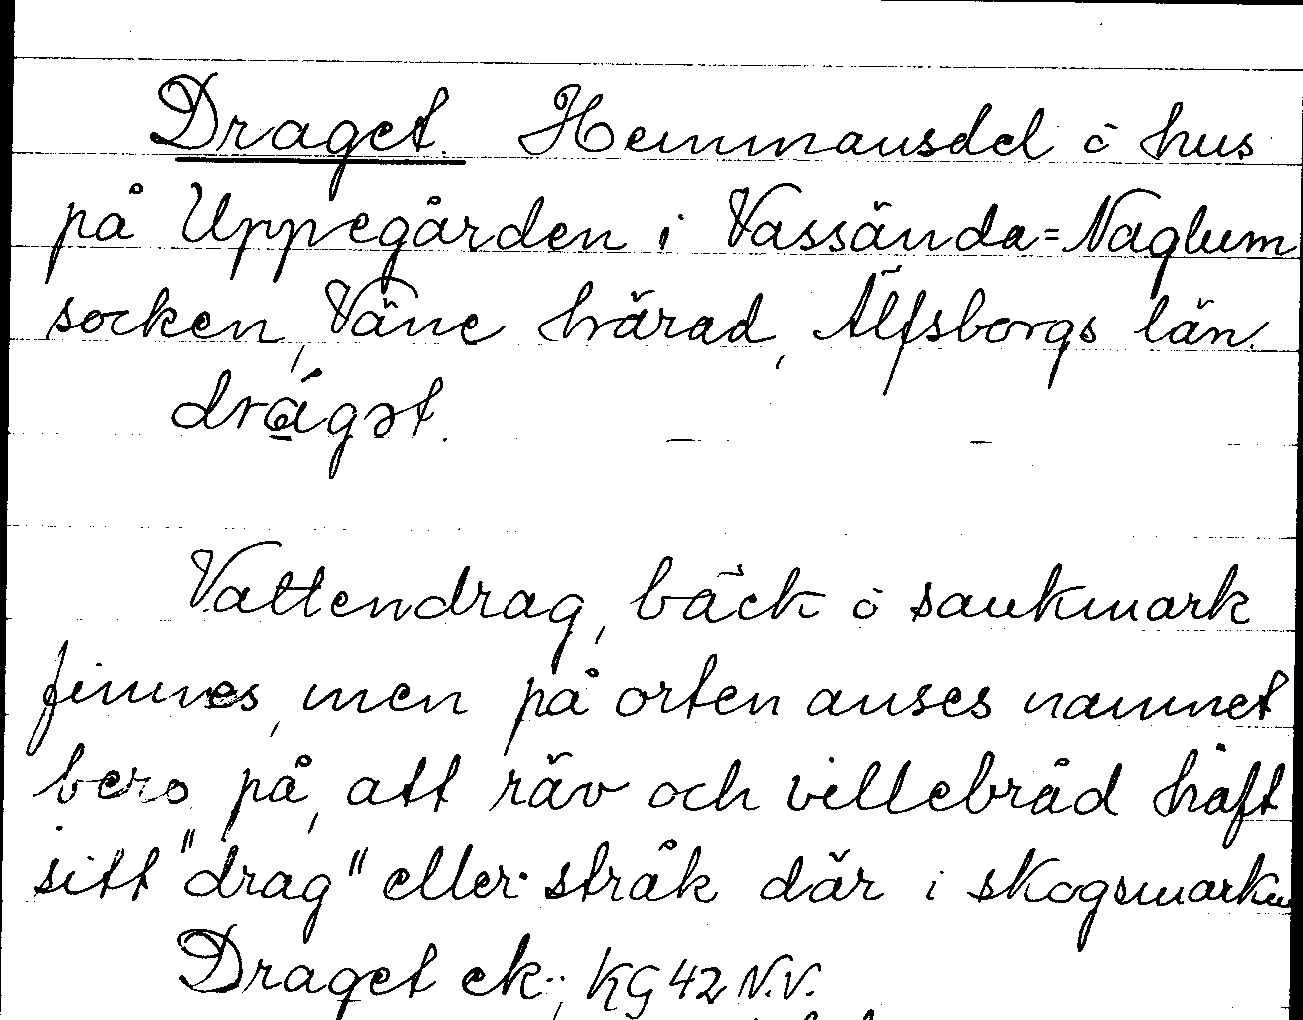 Draget. Hemmansdel o hus
på Uppegården i Vassända=Naglum
socken, Väne härad, Älfsborgs län.
drágət.
Vattendrag, bäck o sankmark
finnes, men på orten anses namnet
bero på, att räv och villebråd haft
sitt "drag" eller stråk där i skogsmarken
Draget ek., KG 42 N.V.